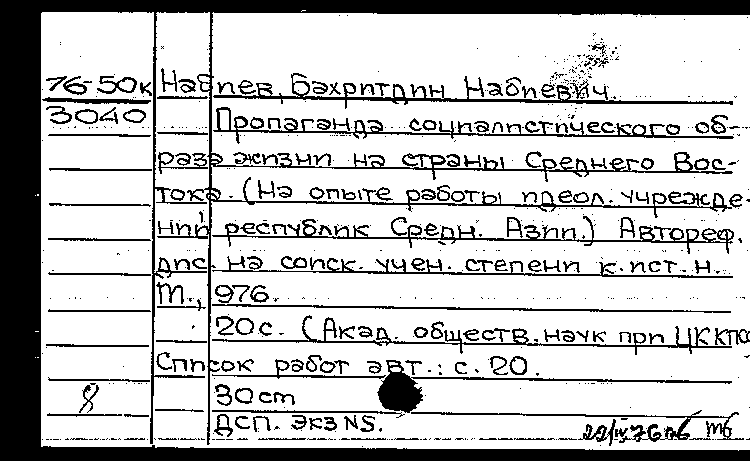 76-50к Набиев, Бахритдин Набиевич.
3040 Пропаганда социалистического об-
раза жизни на страны Среднего Вос-
тока. (На опыте работы идеол. учрежде-
ний республик Средн. Азии.) Автореф.
дис. на соиск. учен. степени к. ист. н.
М., 976.
20 с. (Акад. обществ. наук при ЦК КПСС
Список работ авт.: с. 20.
8 30 cm
ДСП. экз N5.